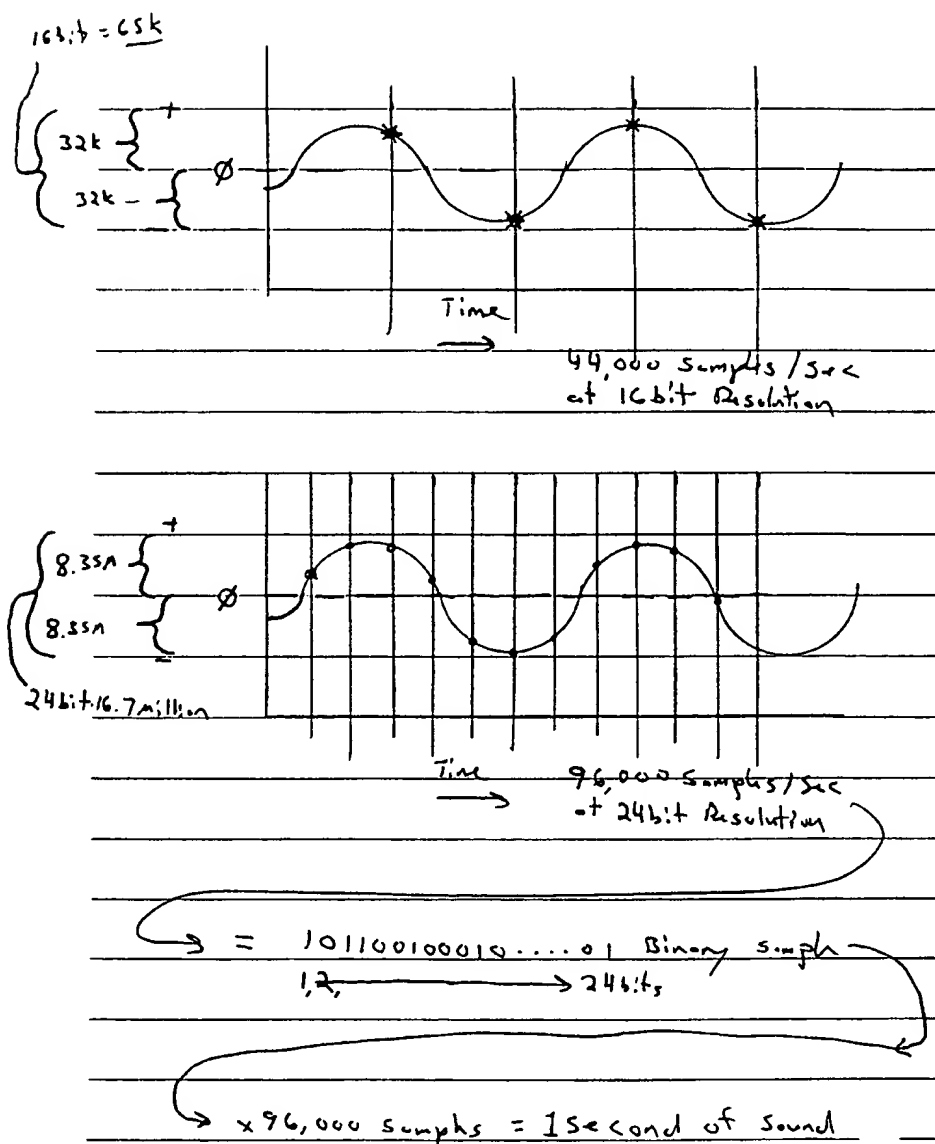 16bit = 65k
+
32k
Ø
32k -
Time
44,000 Samples/Sec
at 16bit Resolution
+
8.35M
Ø
8.35M
-
24bit.16.7 Million
Time
96,000 Samples/Sec
at 24bit Resolution
= 101100100010.....01 Binary sample
1,2, 24bits
x 96,000 samples = 1 Second of Sound